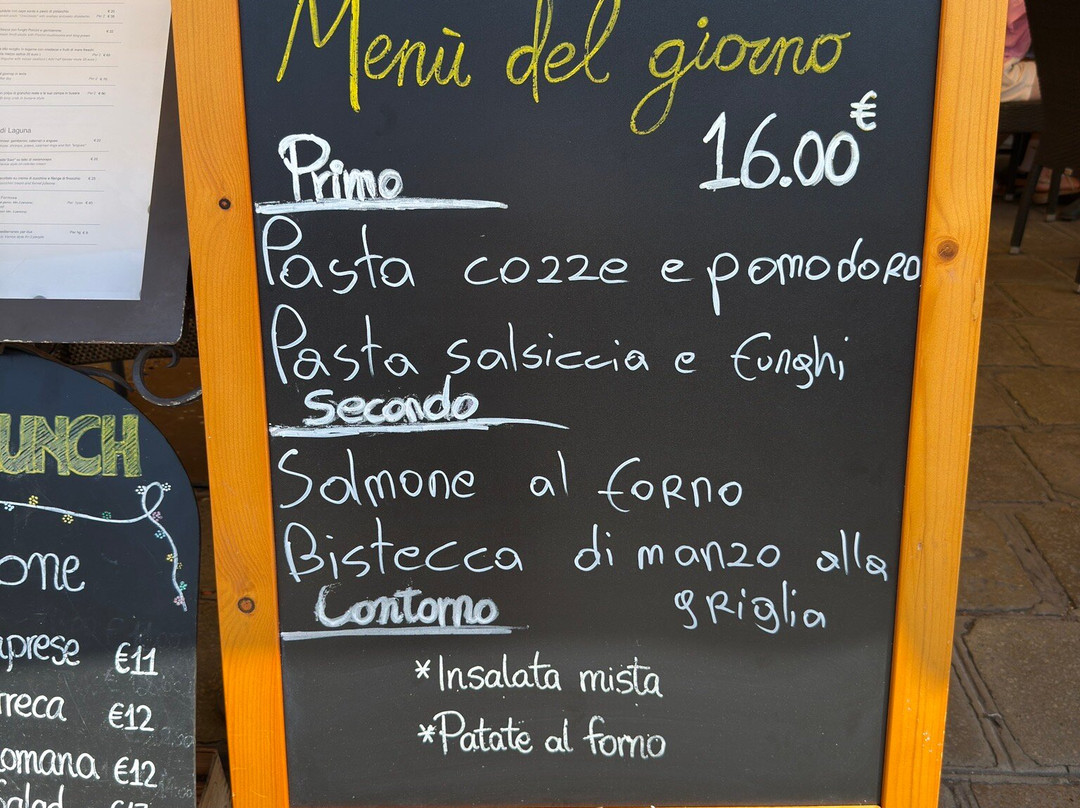 Menù del giorno
16.00€
Primo
Pasta cozze e pomodoro
Pasta salsiccia e funghi
Secondo
Salmone al forno
Bistecca di manzo alla
griglia
Contorno
*Insalata mista
*Patate al forno
di Laguna
UNCH
one
prese €11
rreca €12
omana €12
Salad